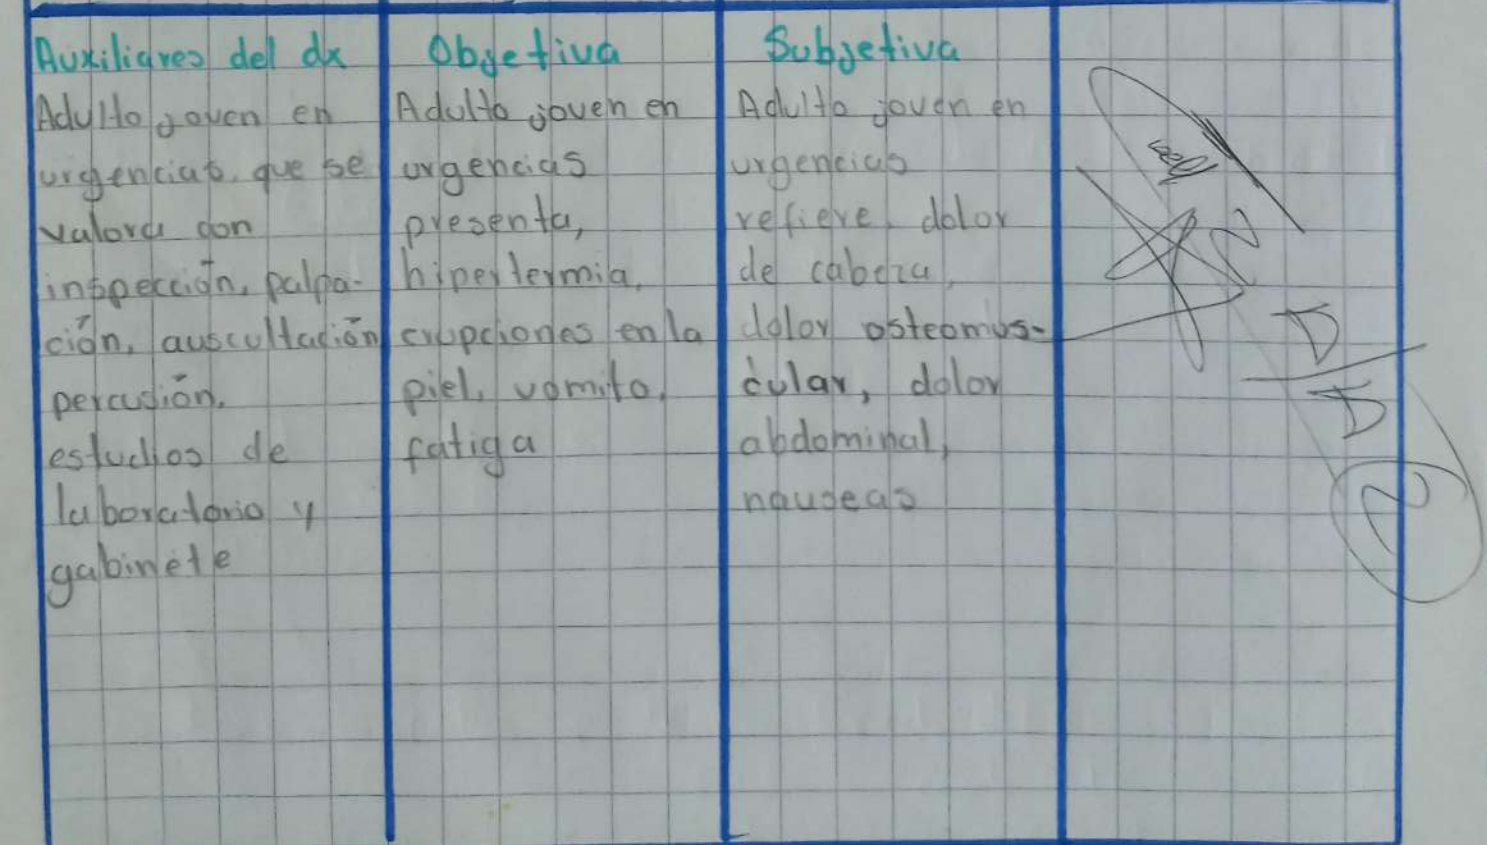 Auxiliares del dx
Adulto joven en
urgencias, que se
valora con
inspección, palpa-
ción, auscultación
percusión,
estudios de
laboratorio y
gabinete
Objetiva
Adulto joven en
urgencias
presenta,
hipertermia,
erupciones en la
piel, vomito,
fatiga
Subjetiva
Adulto joven en
urgencias
refiere, dolor
de cabeza,
dolor osteomus-
cular, dolor
abdominal,
nauseas